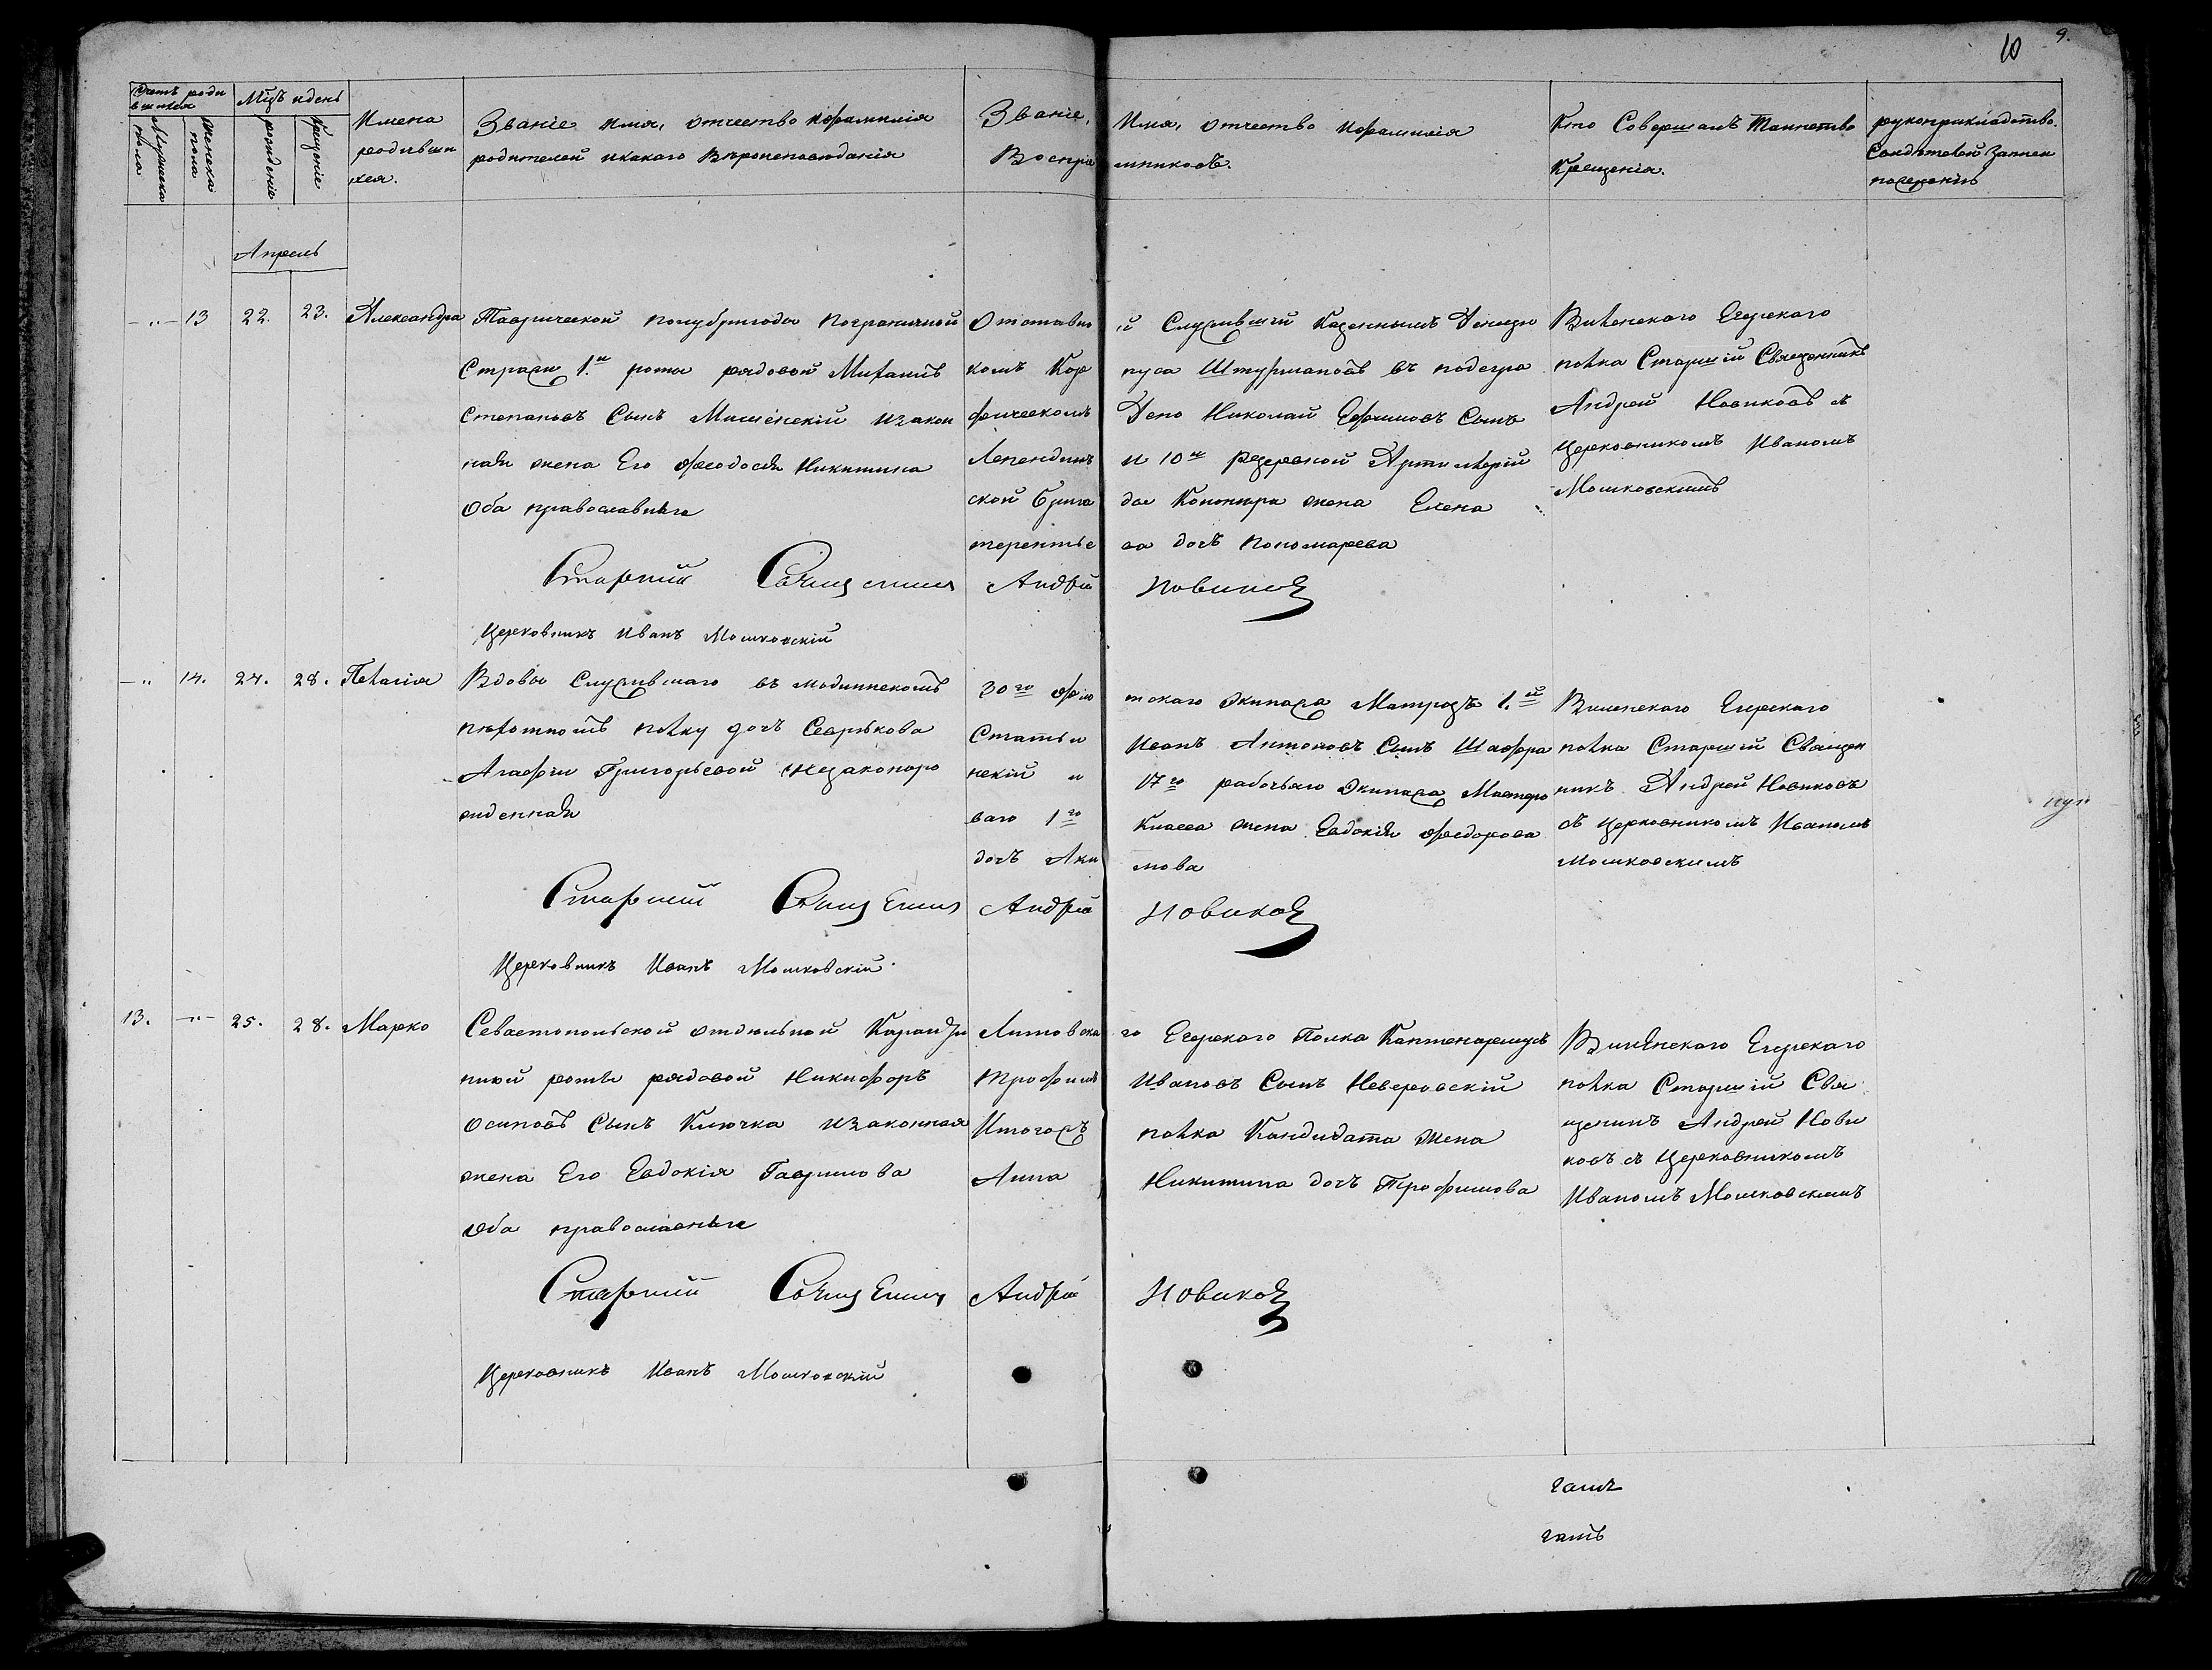 10
9.
Счетъ роди
вшихся
Мужеска
пола
Женска
пола
Мцъ и день
рожденіе
Крещеніе
Имена
родивши
хся.
Званіе имя, отчество и фамилія
родителей и какого Вѣроисповѣданія
Званіе, Имя, отчество и фамилія
Воспріемниковъ.
Кто Совершалъ Таинство
Крещенія.
рукоприкладство.
Свидѣтелей Записи
по желанію
Апрель
—〃— 13 22. 23. Александра
Таврической полубригады пограничной
Стражи 1й роты рядовой Михаилъ
Степановъ Сынъ Мишенскій и закон
ная жена Его Феодосія Никитина
Оба православные
Отставно й Служившій Казеннымъ Денщи
комъ Кор пуса Штурмановъ въ
Депо Николай Ефимовъ Сынъ
и 10й резервной Артиллерій
ской брига ды Канонира жена Елена
терентье ва дочь Пономарева
Виленского Егерского
полка Старшій Священникъ
Андрей Новиковъ съ
церковникомъ Иваномъ
Мошковскимъ
Старшій Священник Андрей Новиков
Церковникъ Иванъ Мошковскій
—〃 14. 24. 28. Пелагія
Вдовы Служившаго въ модлинскомъ
пехотномъ полку дочь Севрюкова
Агафіи Григорьевой незаконоро
жденная
30го фло тского экипажа Матрозъ 1.й
Статьи Иванъ Антоновъ Сынъ Шафра
нскій и 17го рабочьяго экипажа Мастеро
ваго 1го Класса жена Евдокія Федорова
дочь Аки мова
Виленского Егерского
полка Старшій Священ
никъ Андрей Новиковъ
съ церковникомъ Иваномъ
Мошковскимъ
Старшій Священник Андрей Новиков
Церковникъ Иванъ Мошковскій
13. —〃— 25. 28. Марко
Севастопольской отдѣльной Каранти
нной роты рядовой Никифоръ
Осиповъ Сынъ Ключка и законная
жена Его Евдокія Гаврилова
оба православные
Литовска го Егерскаго Полка Каптенармусъ
Трофимъ Ивановъ Сынъ Неверовскій
И тогожъ полка Кандидата жена
Анна Никитина дочь Трофимова
Виленскаго Егерскаго
полка Старшій Свя
щенникъ Андрей Нови
ковъ съ Церковникомъ
Иваномъ Мошковскимъ
Старшій Священник Андрей Новиков
Церковникъ Иванъ Мошковскій